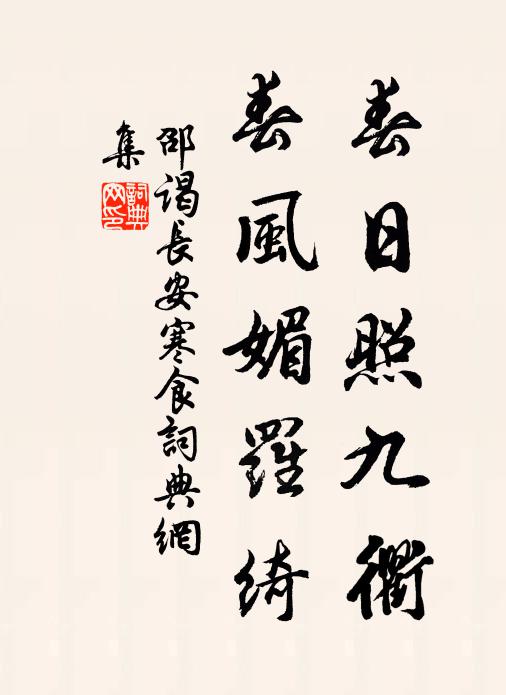 春日照九衢
春風媚羅綺
邵謁長安寒食詞典網
集
詞典
网印